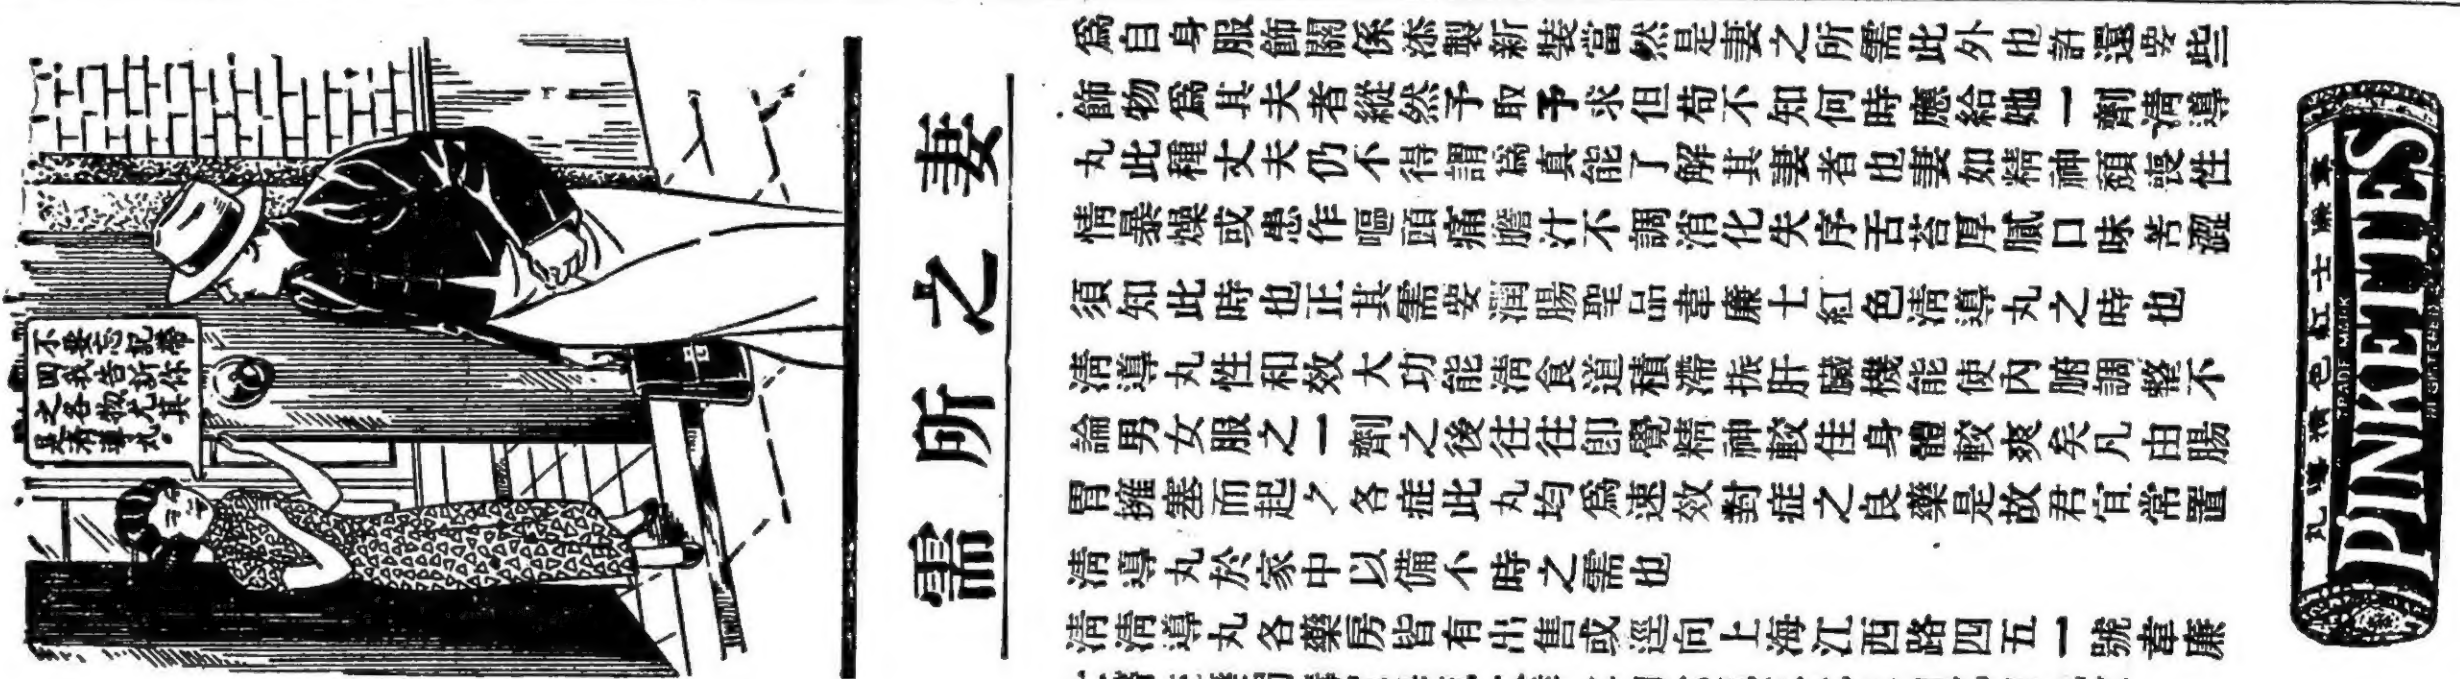 不要忘記帶
回我告訴你
之各物尤其
是清導丸。
妻之所需
為自身服飾關係添製新裝當然是妻之所需此外也許還要些
飾物爲其夫者縱然予取予求但苟不知何時應給她一劑清導
丸此種丈夫仍不得謂爲真能了解其妻者也妻如精神頹喪性
情暴燥或患作嘔頭痛膽汁不調消化失序舌苔厚膩口味苦澀
須知此時也正其需要潤腸聖品韋廉士紅色清導丸之時也
清導丸性和效大功能清食道積滯振肝臟機能使內腑調整不
論男女服之一劑之後往往卽覺精神較佳身體較爽矣凡由腸
胃擁塞而起之各症此丸均爲速效對症之良藥是故君宜常置
清導丸於家中以備不時之需也
清清導丸各藥房皆有出售或逕向上海江西路四五一號韋廉
韋廉士紅色清導丸
TRADE MARK
PINKETTES
REGISTERED